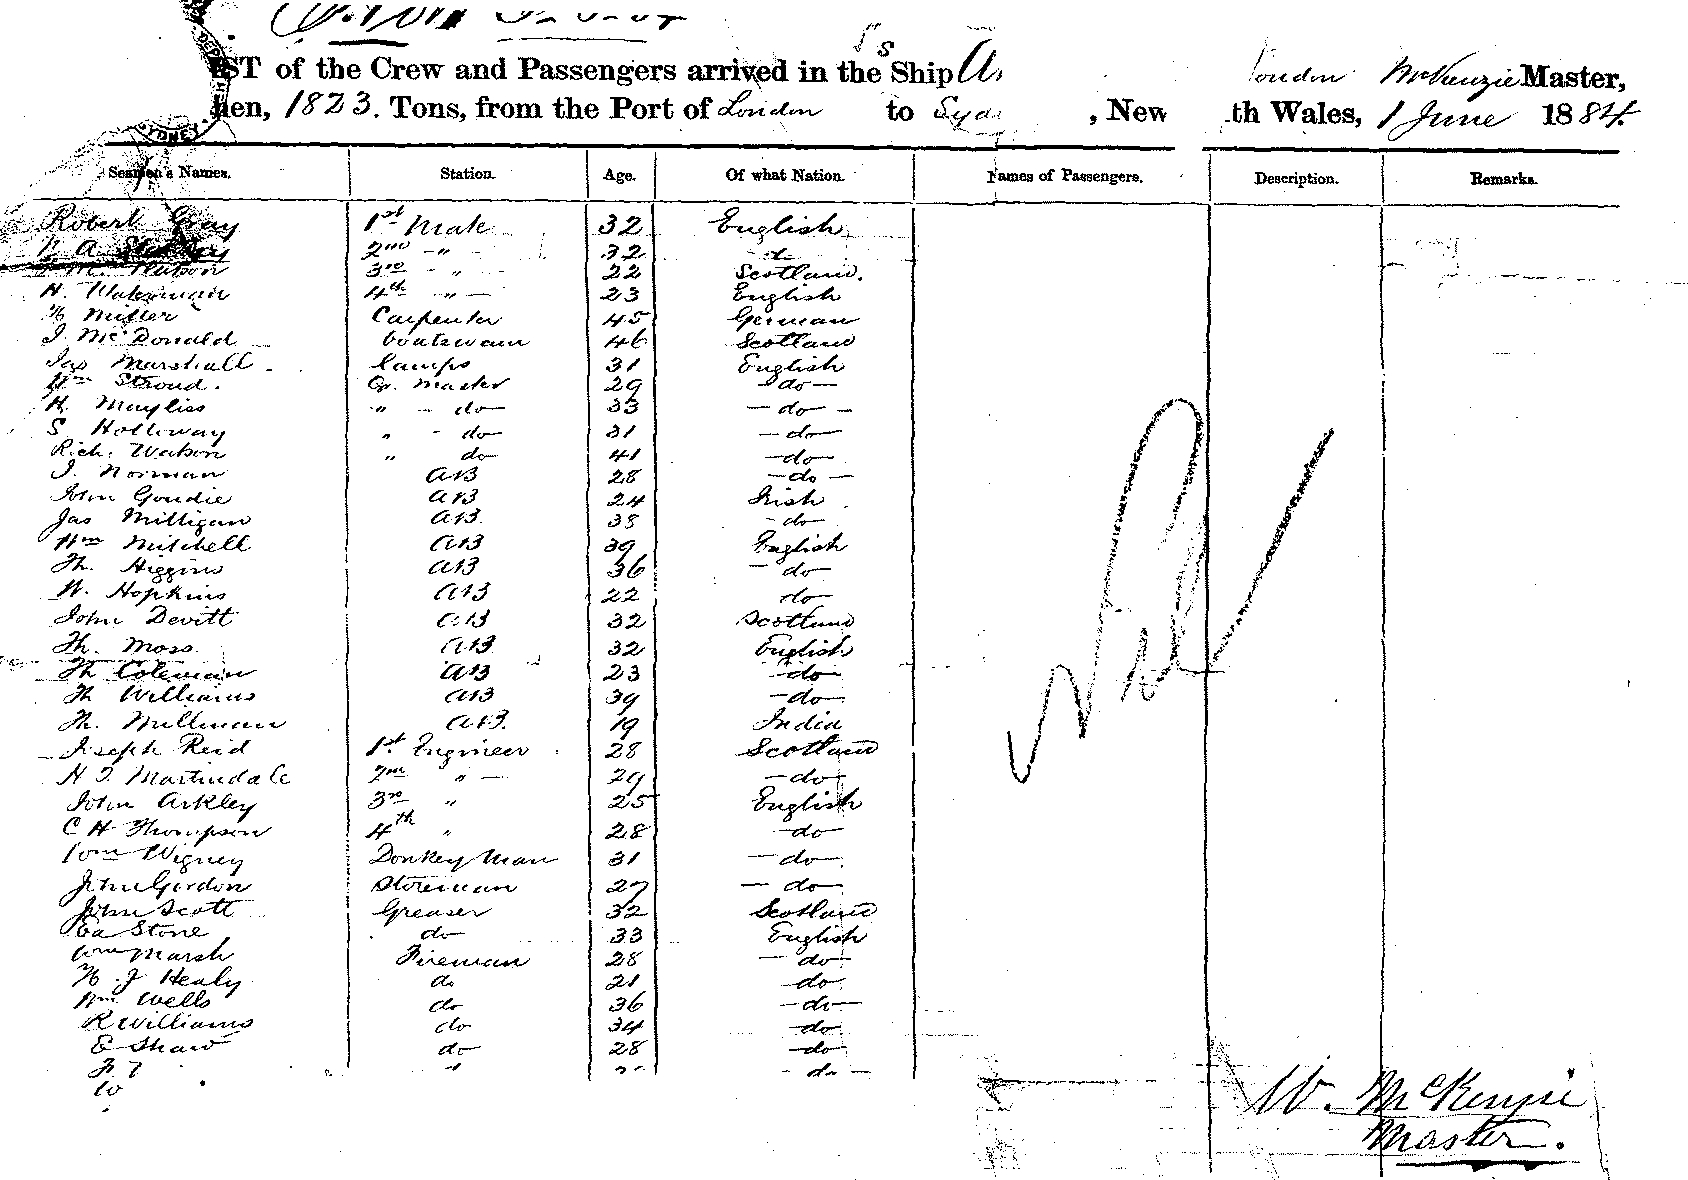 ST of the Crew and Passengers arrived in the Ship London McKenzie Master,
1823. Tons, from the Port of London to , New th Wales, 1 June 1884.
Seamen's Names. Station. Age. Of what Nation. Names of Passengers. Description. Remarks.
Robert Gray 1st Mate 32 English
A 2nd " 32 do
3rd - " 22 Scotland.
H. Waterman 4th " - 23 English
Miller Carpenter 45 German
J. McDonald boatswain 46 Scotland
Jas Marshall lamps 31 English
Wm Stroud. Qr. Master 29 do
H. Mayliss " - do 33 - do -
S Holloway " - do 31 - do -
Rich. Watson " do 41 - do -
J. Norman AB 28 - do -
John Goudie AB 24 Irish
Jas Milligan AB. 38 - do
Wm Mitchell AB 39 English
Th. Higgins AB 36 - do -
W. Hopkins AB 22 do
John Devitt AB 32 Scotland
Th. Moss AB 32 English
Th Coleman AB 23 - do -
Th Williams AB 39 - do -
Th. Millman AB. 19 India
Joseph Reid 1st Engineer 28 Scotland
H J Martindale 2nd " - 29 - do -
John Arkley 3rd " 25 English
C H Thompson 4th " 28 - do
Wigney Donkey Man 31 - do -
John Gordon Storeman 27 - do -
John Scott Greaser 32 Scotland
Ed Stone do 33 English
Wm Marsh Fireman 28 - do -
J Healy do 21 - do
Wm. Wells do 36 - do -
R Williams do 34 - do
E Shaw do 28 - do
- do -
Nil
W. McKenzie
Master.